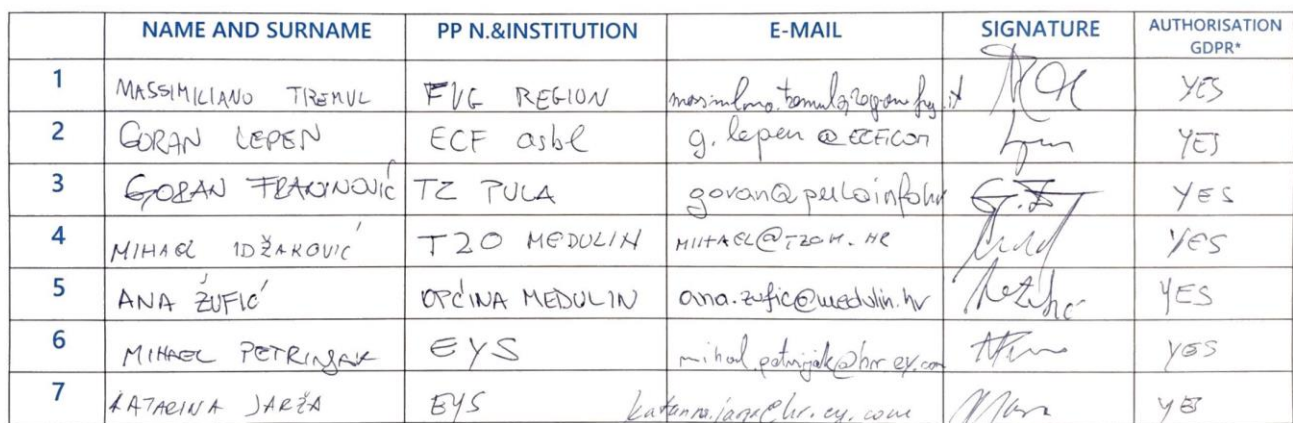 NAME AND SURNAME PP N.&INSTITUTION E-MAIL SIGNATURE AUTHORISATION GDPR*
1 MASSIMILIANO TREMUL FVG REGION YES
2 GORAN LEPEN ECF asbl g.lepen@ECF.COM YES
3 GORAN FRANINOVIĆ TZ PULA goran@pulainfo.hr G.F YES
4 MIHAEL IDŽAKOVIĆ TZO MEDULIN MIHAEL@TZOM.HR YES
5 ANA ŽUFIĆ OPĆINA MEDULIN ana.zufic@medulin.hr YES
6 MIHAEL PETRINJAK EYS YES
7 KATARINA JARŽA EYS YES